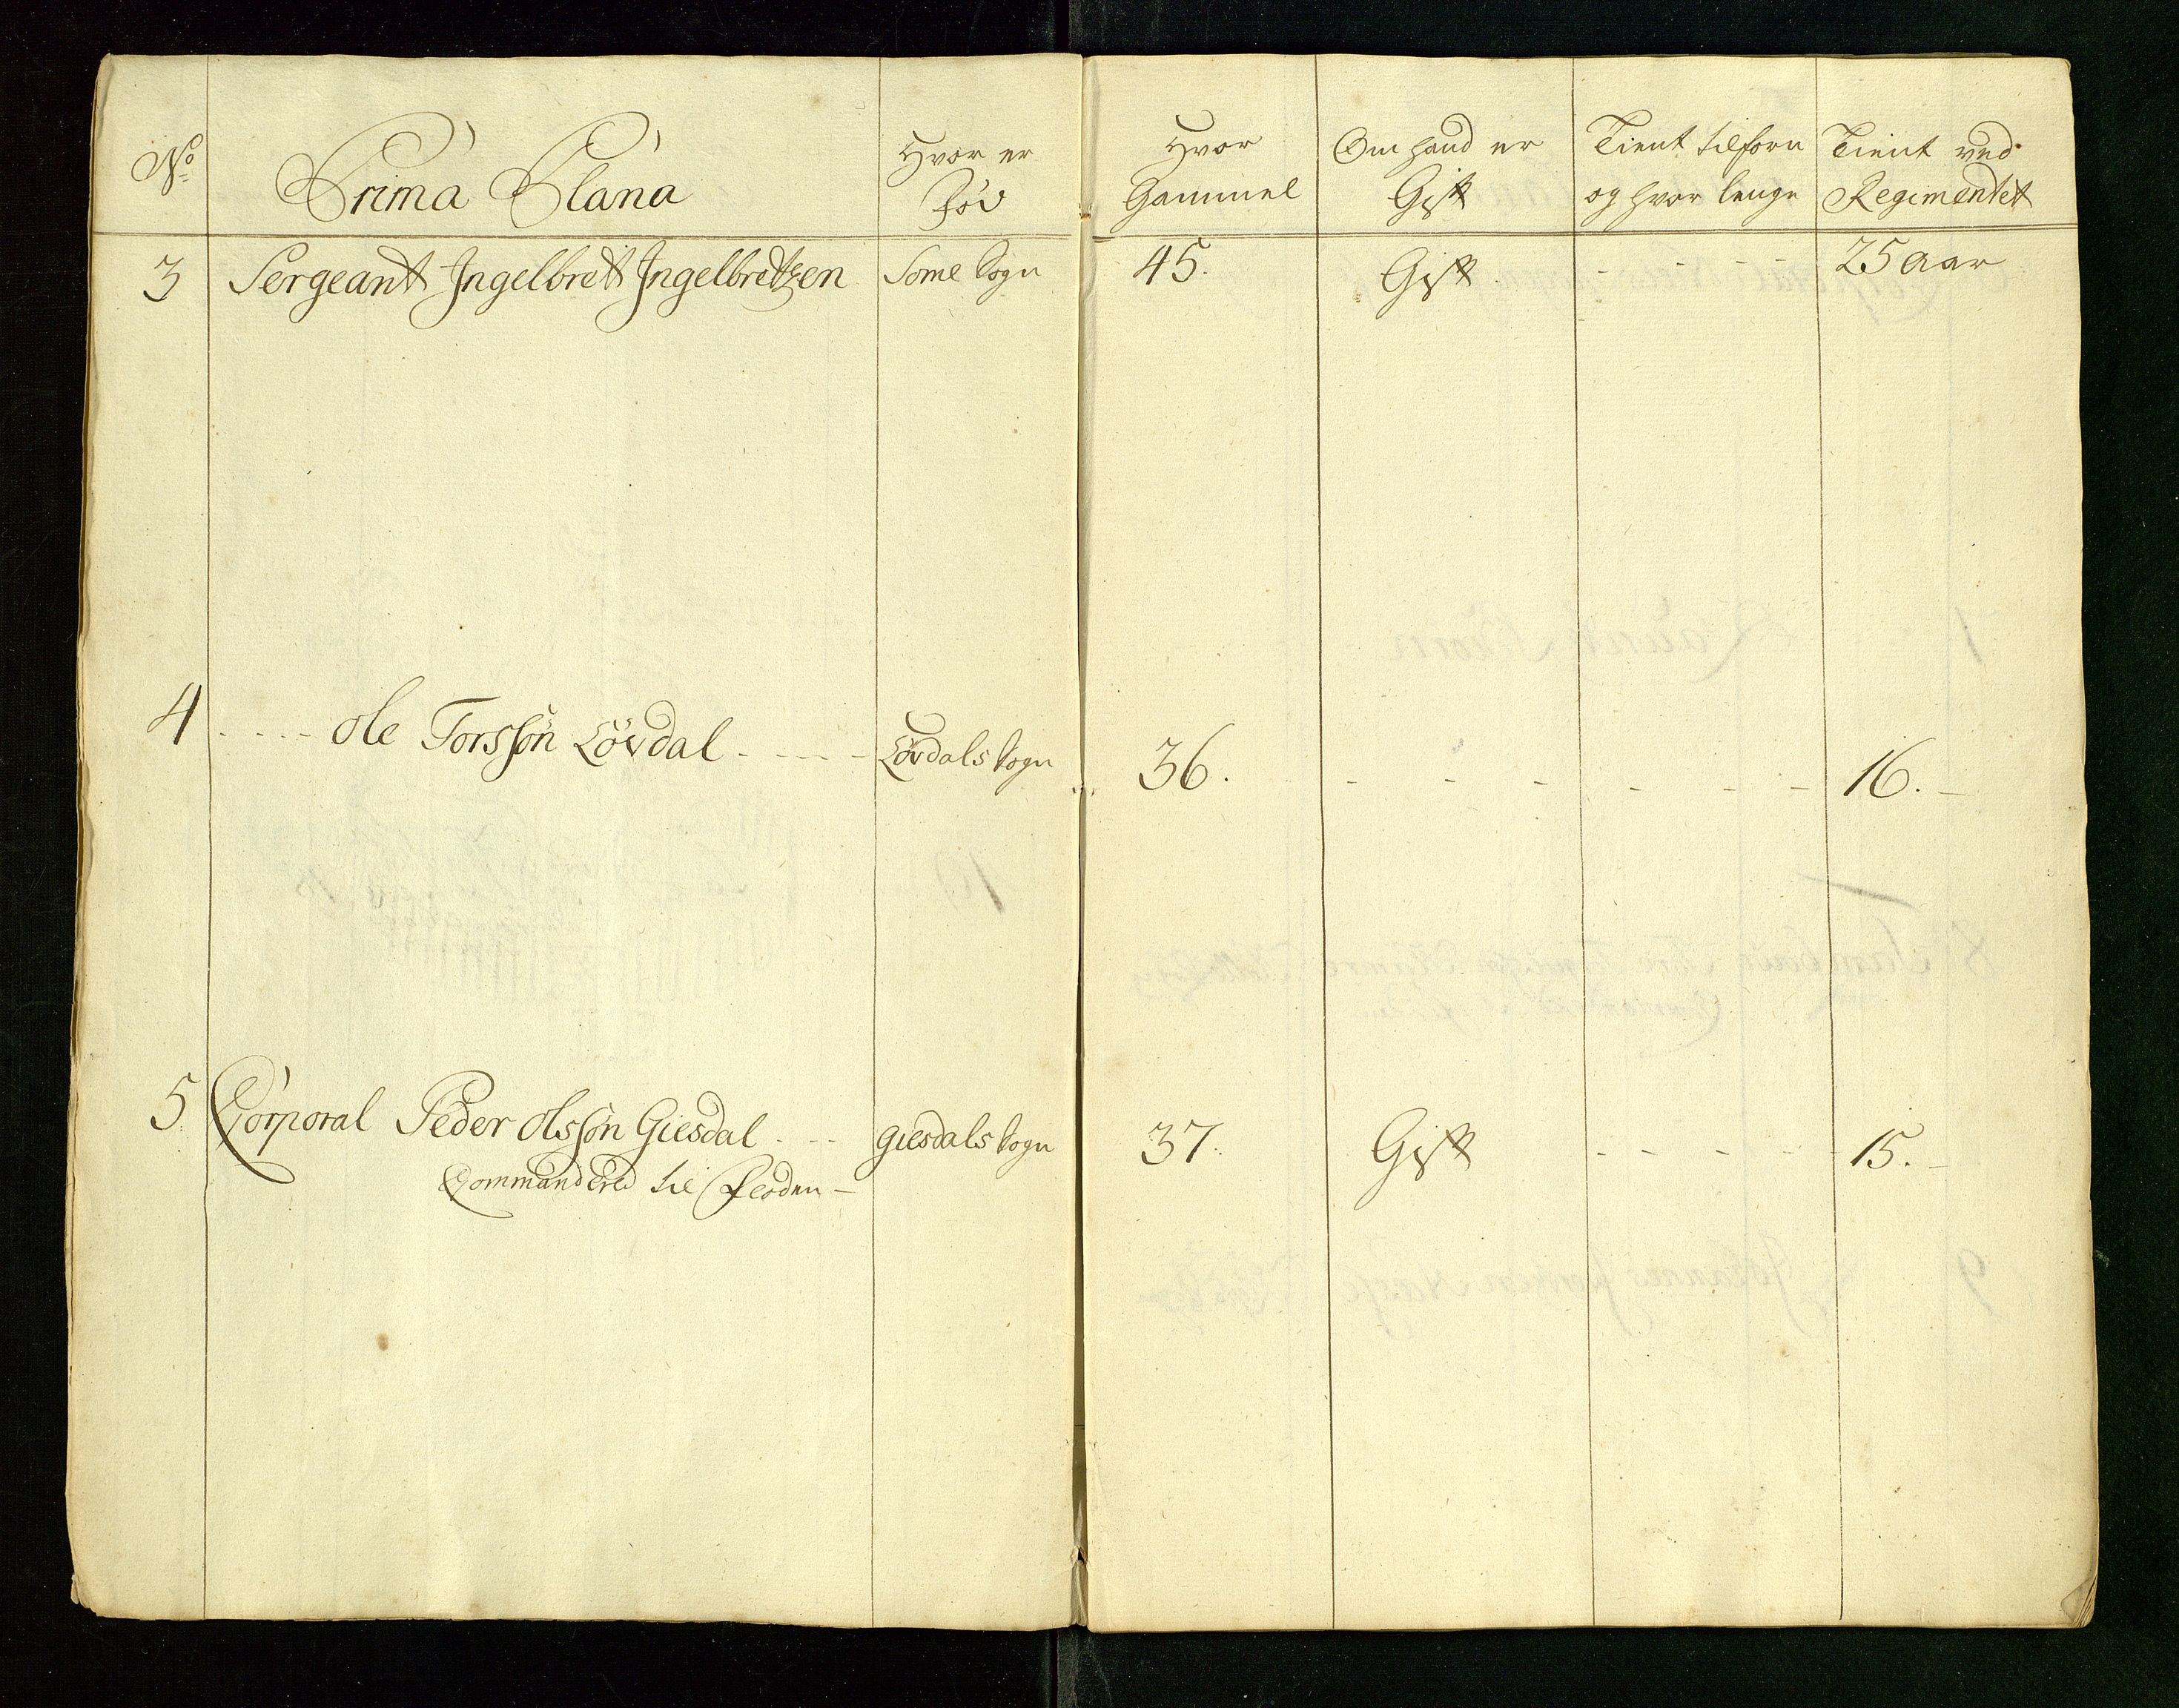 No Prima Plana Hvor er Hvor Om hand er Tient tilforn Tient ved
Fød Gammel Gift og hvor lenge Regimentet
3 Sergeant Ingelbret Ingelbretzen Some Sogn 45. Gift - - - - 25 Aar
4 - - - - Ole Torssøn Løvdal - - - - Løvdals Sogn 36. - - - - - - 16. -
5 Corporal Peder Olssøn Giesdal - - - Giesdals Sogn 37. Gift - - - - 15. -
Commandered til Floden -